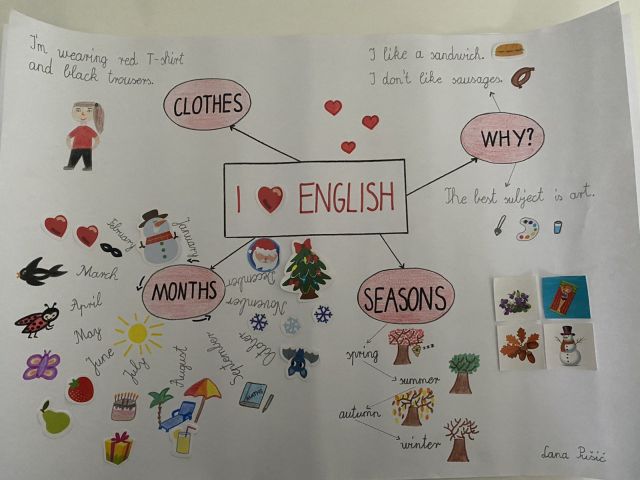 I'm wearing red T-shirt
and black trousers.
CLOTHES
I like a sandwich.
I don't like sausages.
WHY?
The best subject is art.
I ENGLISH
MONTHS
January
February
March
April
May
June
July
August
September
October
November
December
SEASONS
spring
summer
autumn
winter
Lana